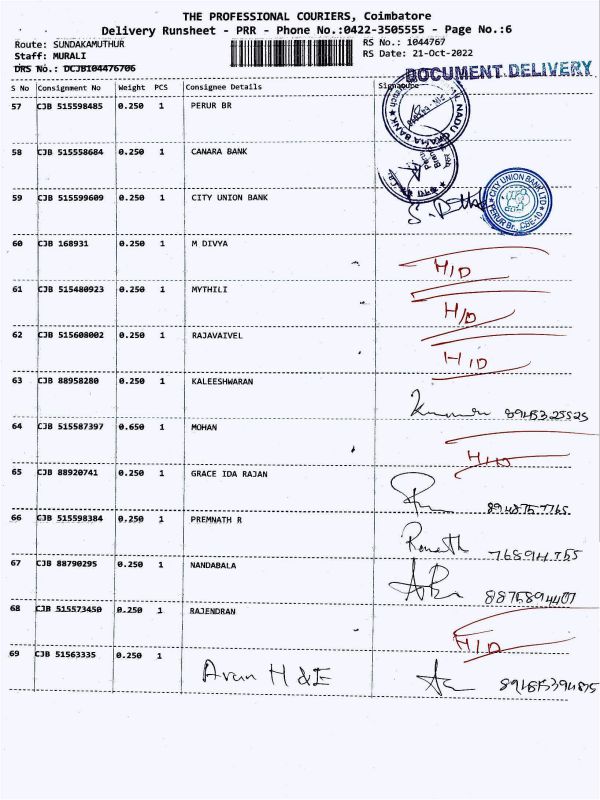 THE PROFESSIONAL COURIERS, Coimbatore
Delivery Runsheet - PRR - Phone No.:0422-3505555 - Page No.:6
Route: SUNDAKAMUTHUR RS No.: 1044767
Staff: MURALI RS Date: 21-Oct-2022
DRS No.: DCJB104476706
DOCUMENT DELIVERY
S No Consignment No Weight PCS Consignee Details Signature
57 CJB 515598485 0.250 1 PERUR BR
NADU GRAMA BANK
58 CJB 515558684 0.250 1 CANARA BANK
59 CJB 515599609 0.250 1 CITY UNION BANK
CITY UNION BANK LTD
PERUR Br., CBE-10
60 CJB 168931 0.250 1 M DIVYA H/D
61 CJB 515480923 0.250 1 MYTHILI H/D
62 CJB 515608002 0.250 1 RAJAVAIVEL H/D
63 CJB 88958280 0.250 1 KALEESHWARAN
64 CJB 515587397 0.650 1 MOHAN H/D
65 CJB 88920741 0.250 1 GRACE IDA RAJAN
66 CJB 515598384 0.250 1 PREMNATH R
67 CJB 88790295 0.250 1 NANDABALA 8875894407
68 CJB 515573450 0.250 1 RAJENDRAN H/D
69 CJB 51563335 0.250 1 Arun H &E